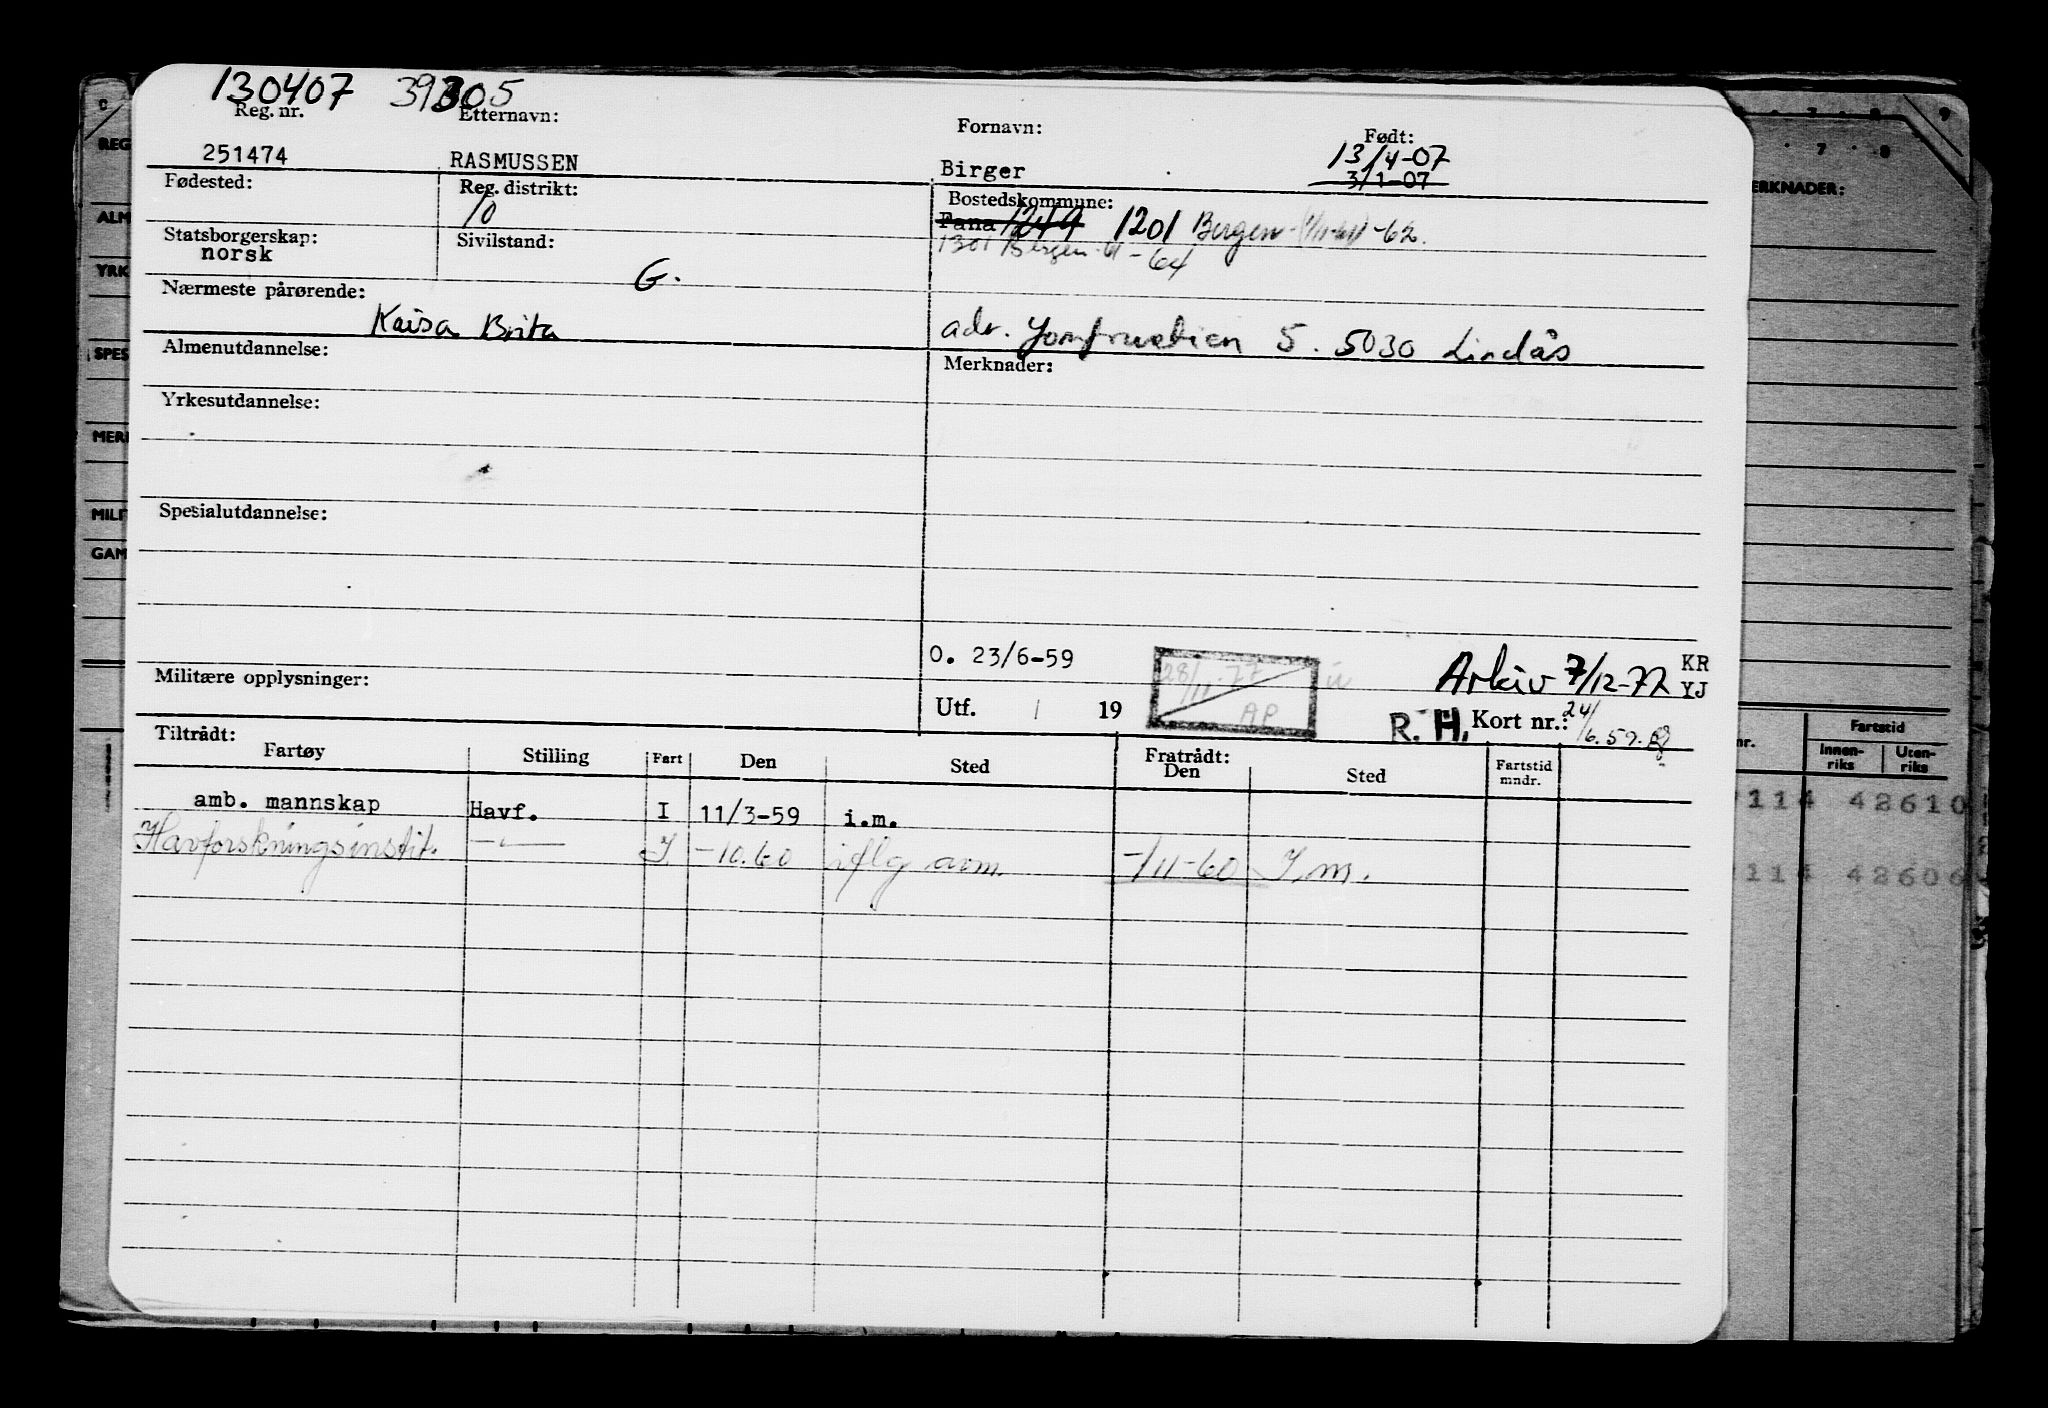 130407 39305
Reg. nr. Etternavn: Fornavn: Født:
13/4-07
251474 RASMUSSEN Birger 3/1-07
Fødested: Reg. distrikt: Bostedskommune:
10 Fana 1249 1201 Bergen -62.
Statsborgerskap: Sivilstand: 1301 Bergen -61-64
norsk G.
Nærmeste pårørende:
Kaisa Brita adr. Jomfrustien 5. 5030 Lindås
Almenutdannelse: Merknader:
Yrkesutdannelse:
Spesialutdannelse:
O. 23/6-59 28/11-77 Arkiv 7/12-77 KR
Militære opplysninger: YJ
Utf. / 19 AP R. H. Kort nr.: 24/6.59.
Tiltrådt: Fratrådt:
Fartøy Stilling Fart Den Sted Den Sted Fartstid mndr.
amb. mannskap Havf. I 11/3-59 i.m.
Havforskningsinstit. -"- I -10.60 iflg avm. -/11-60 I.m.
REG
ALM
YRK
SPES
MERI
MILI
GAM
ERKNADER:
nr. Fartstid
Innen-riks Uten-riks
114 42610
114 42606